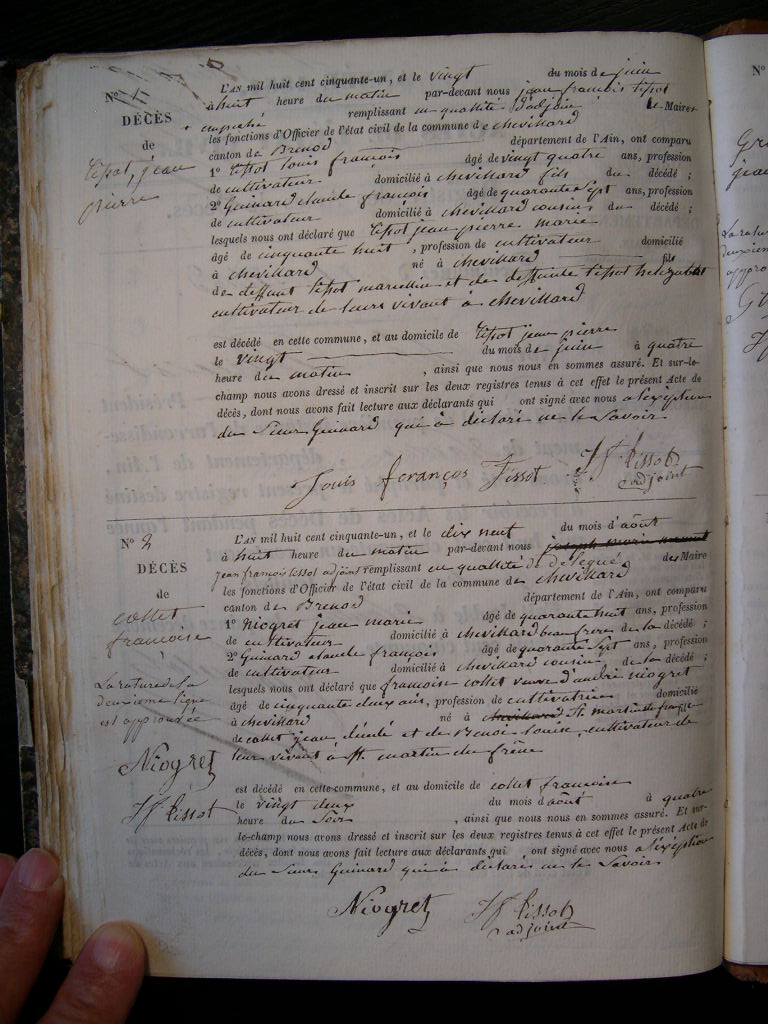 N° 1
DÉCÈS
de
tissot, jean
pierre
L'AN mil huit cent cinquante-un, et le vingt du mois de juin
à huit heure du matin par-devant nous jean françois tissot
remplissant en qualité d'adjoin le Maire
empeché
les fonctions d'Officier de l'état civil de la commune de chevillard
canton de Brenod département de l'Ain, ont comparu
1° tissot louis françois âgé de vingt quatre ans, profession
de cultivateur domicilié à chevillard fils du décédé ;
2° Guinard claude françois âgé de quarante sept ans, profession
de cultivateur domicilié à chevillard cousin du décédé ;
lesquels nous ont déclaré que tissot jean pierre marie
âgé de cinquante huit , profession de cultivateur domicilié
à chevillard né à chevillard fils
de deffunt tissot marcellin et de deffunte tissot
cultivateur de leurs vivant à chevillard
est décédé en cette commune, et au domicile de tissot jean pierre
le vingt du mois de juin à quatre
heure du matin , ainsi que nous nous en sommes assuré. Et sur-le-
champ nous avons dressé et inscrit sur les deux registres tenus à cet effet le présent Acte de
décès, dont nous avons fait lecture aux déclarants qui ont signé avec nous a l'exéption
du sieur Guinard qui à déclaré ne le Savoir
Louis françois Tissot JF tissot
adjoint
N° 2
DÉCÈS
de
collet
françoise
La rature de la
deuxième ligne
est approuvée
Niogret
JF tissot
L'AN mil huit cent cinquante-un, et le dix neuf du mois d'août
à huit heure du matin par-devant nous joseph marie
jean françois tissot adjoint remplissant en qualité de délegué des Maire
les fonctions d'Officier de l'état civil de la commune de chevillard
canton de Brenod département de l'Ain, ont comparu
1° niogret jean marie âgé de quarante huit ans, profession
de cultivateur domicilié à chevillard beau frere de la décédé ;
2° Guinard claude françois âgé de quarante sept ans, profession
de cultivateur domicilié à chevillard cousin de la décédé ;
lesquels nous ont déclaré que françoise collet veuve d'andré niogret
âgé de cinquante deux ans, profession de cultivatrice domicilié
à chevillard né à chevillard St. martin du frene fille
de collet jean décédé et de Benoi louise, cultivateur de
leur vivant à St. martin du frêne
est décédé en cette commune, et au domicile de collet françoise
le vingt deux du mois d'août à quatre
heure du Soir , ainsi que nous nous en sommes assuré. Et sur-
le-champ nous avons dressé et inscrit sur les deux registres tenus à cet effet le présent Acte de
décès, dont nous avons fait lecture aux déclarants qui ont signé avec nous a l'exéption
du Sieur Guinard qui à déclaré ne le Savoir
Niogret JF tissot
adjoint
N°